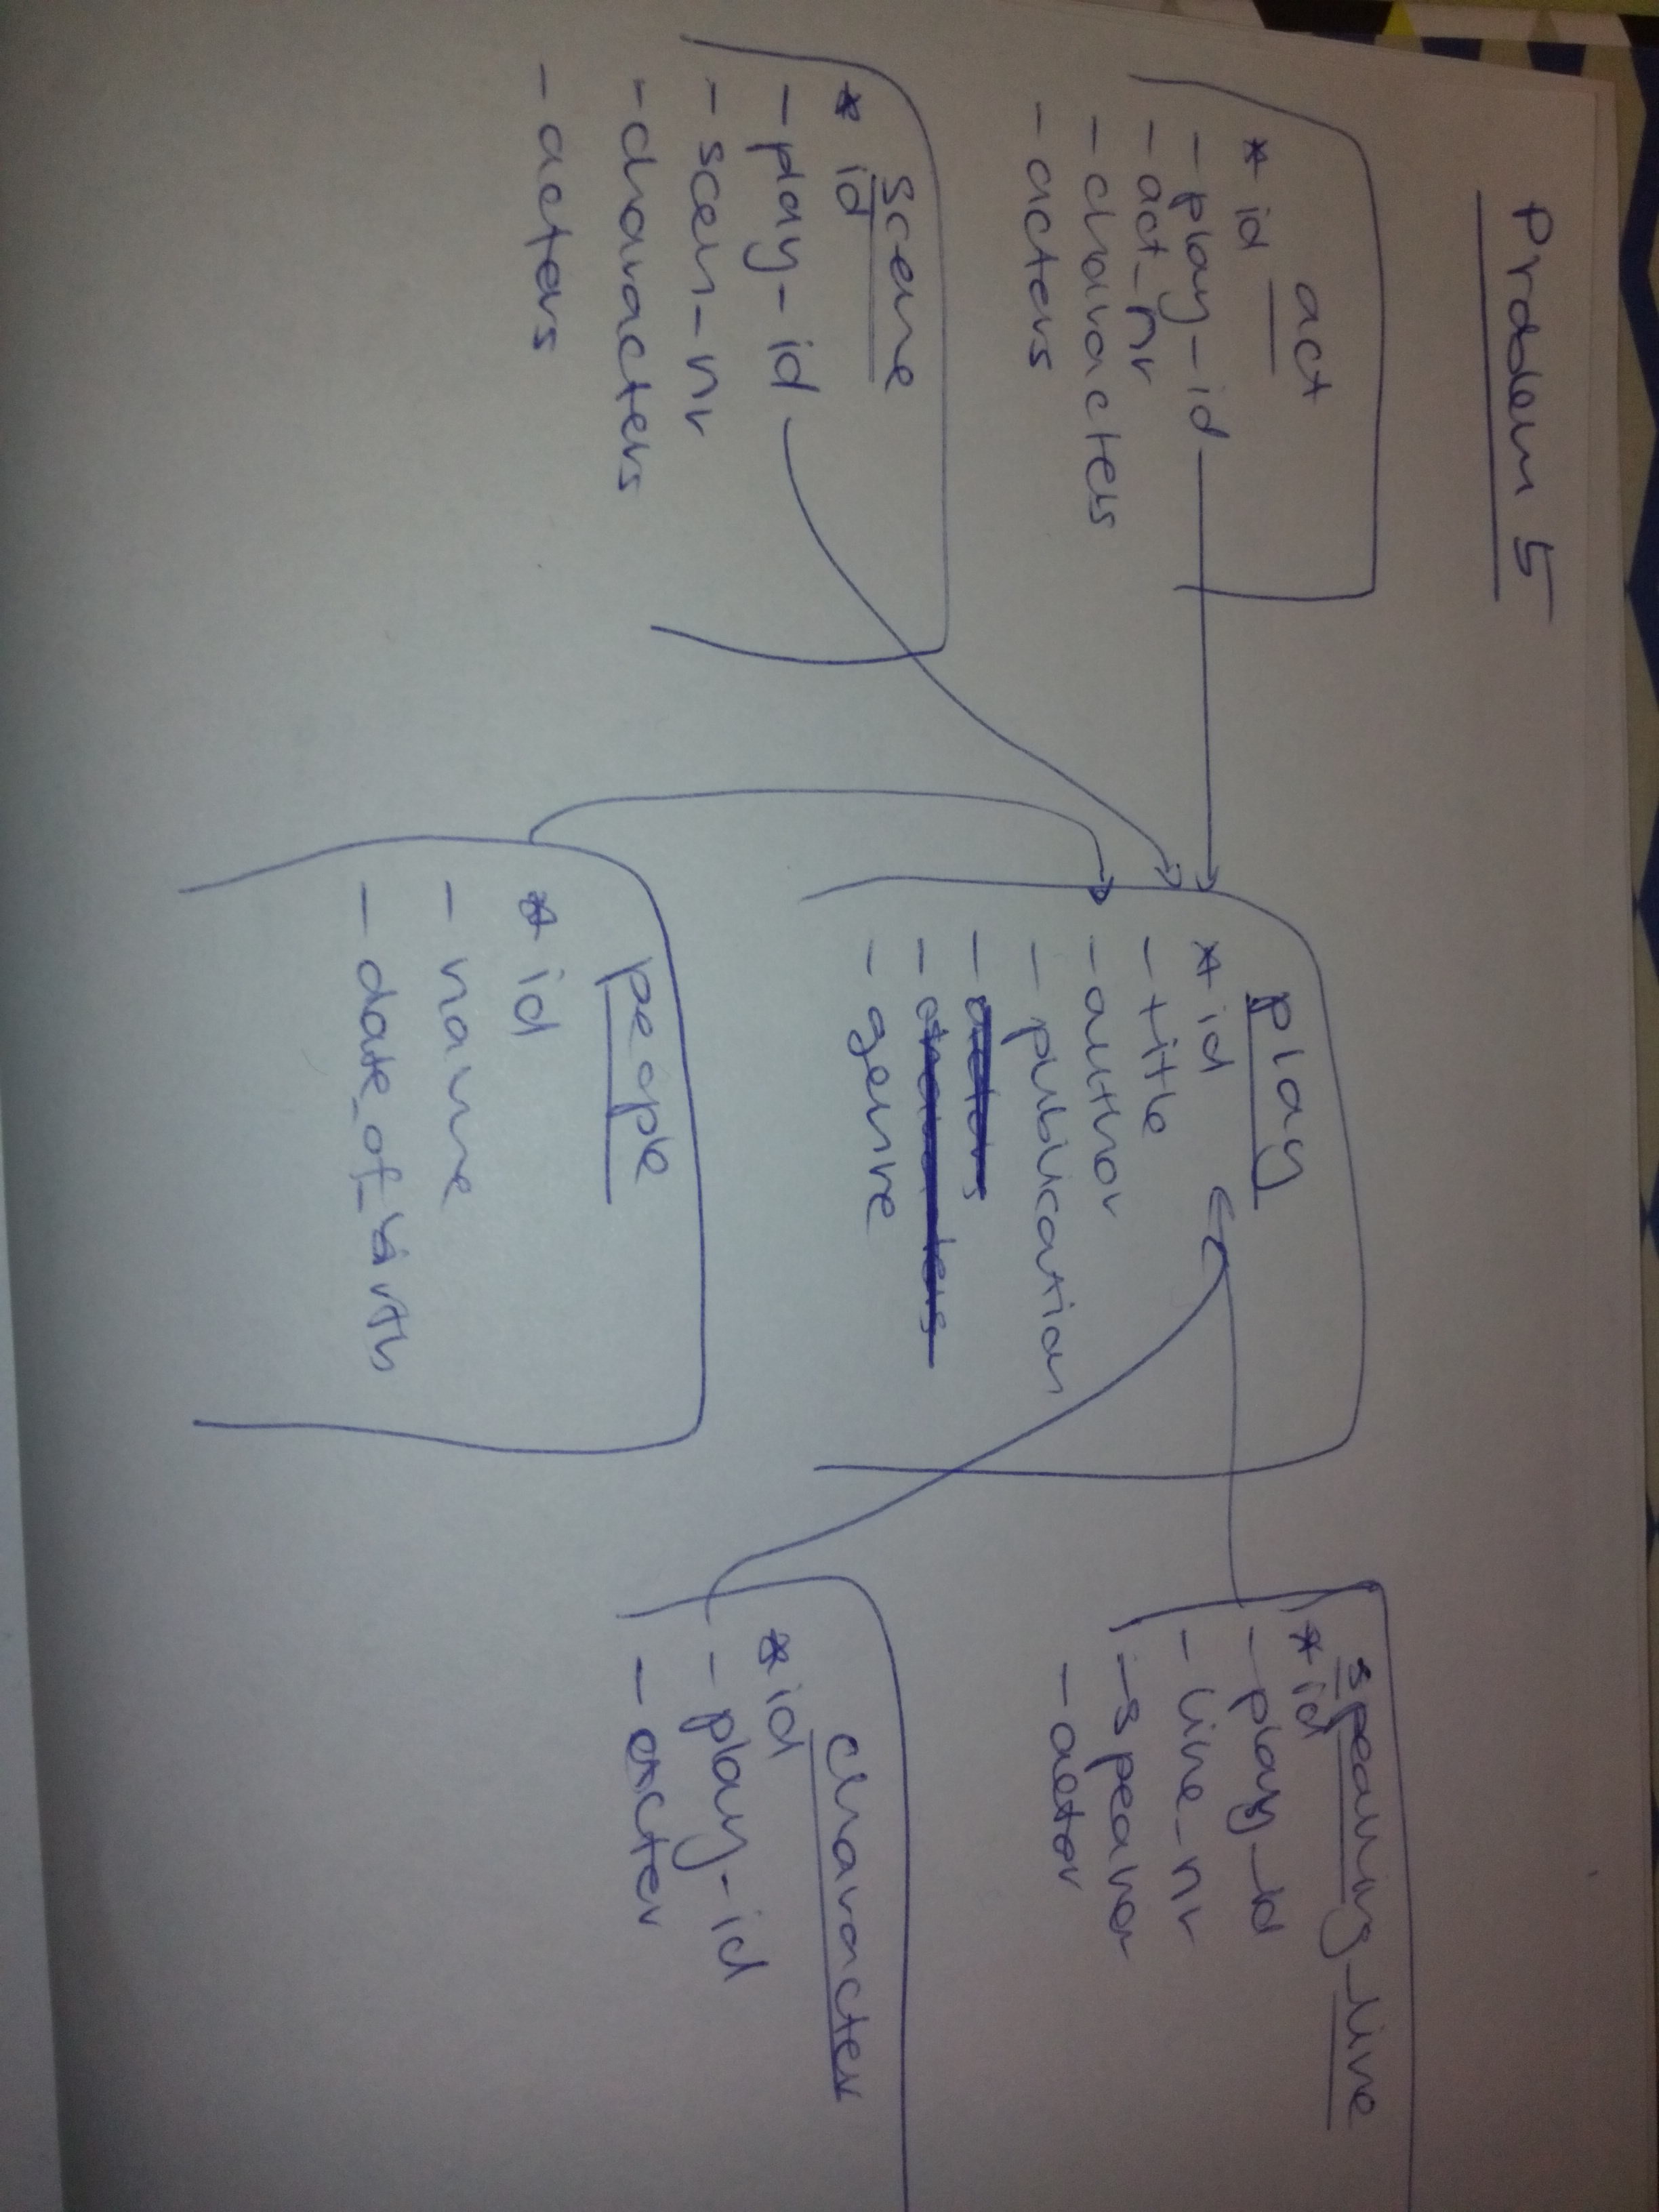 Problem 5
act
* id
- play_id
- act_nr
- characters
- acters
scene
* id
- play_id
- scen_nr
- characters
- acters
play
* id
- title
- author
- publication
- genre
people
* id
- name
- date_of_birth
speaking_line
* id
- play_id
- line_nr
- speaker
- actor
character
* id
- play_id
- acter